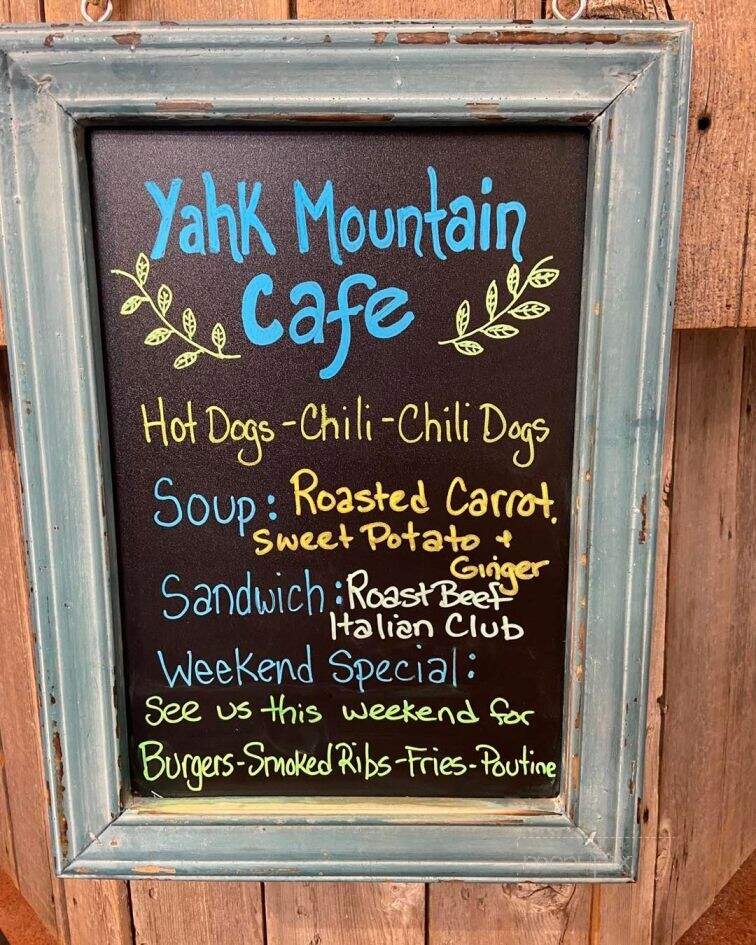 Yahk Mountain
Cafe
Hot Dogs - Chili - Chili Dogs
Soup: Roasted Carrot,
Sweet Potato +
Ginger
Sandwich: Roast Beef
Italian Club
Weekend Special:
See us this weekend for
Burgers - Smoked Ribs - Fries - Poutine